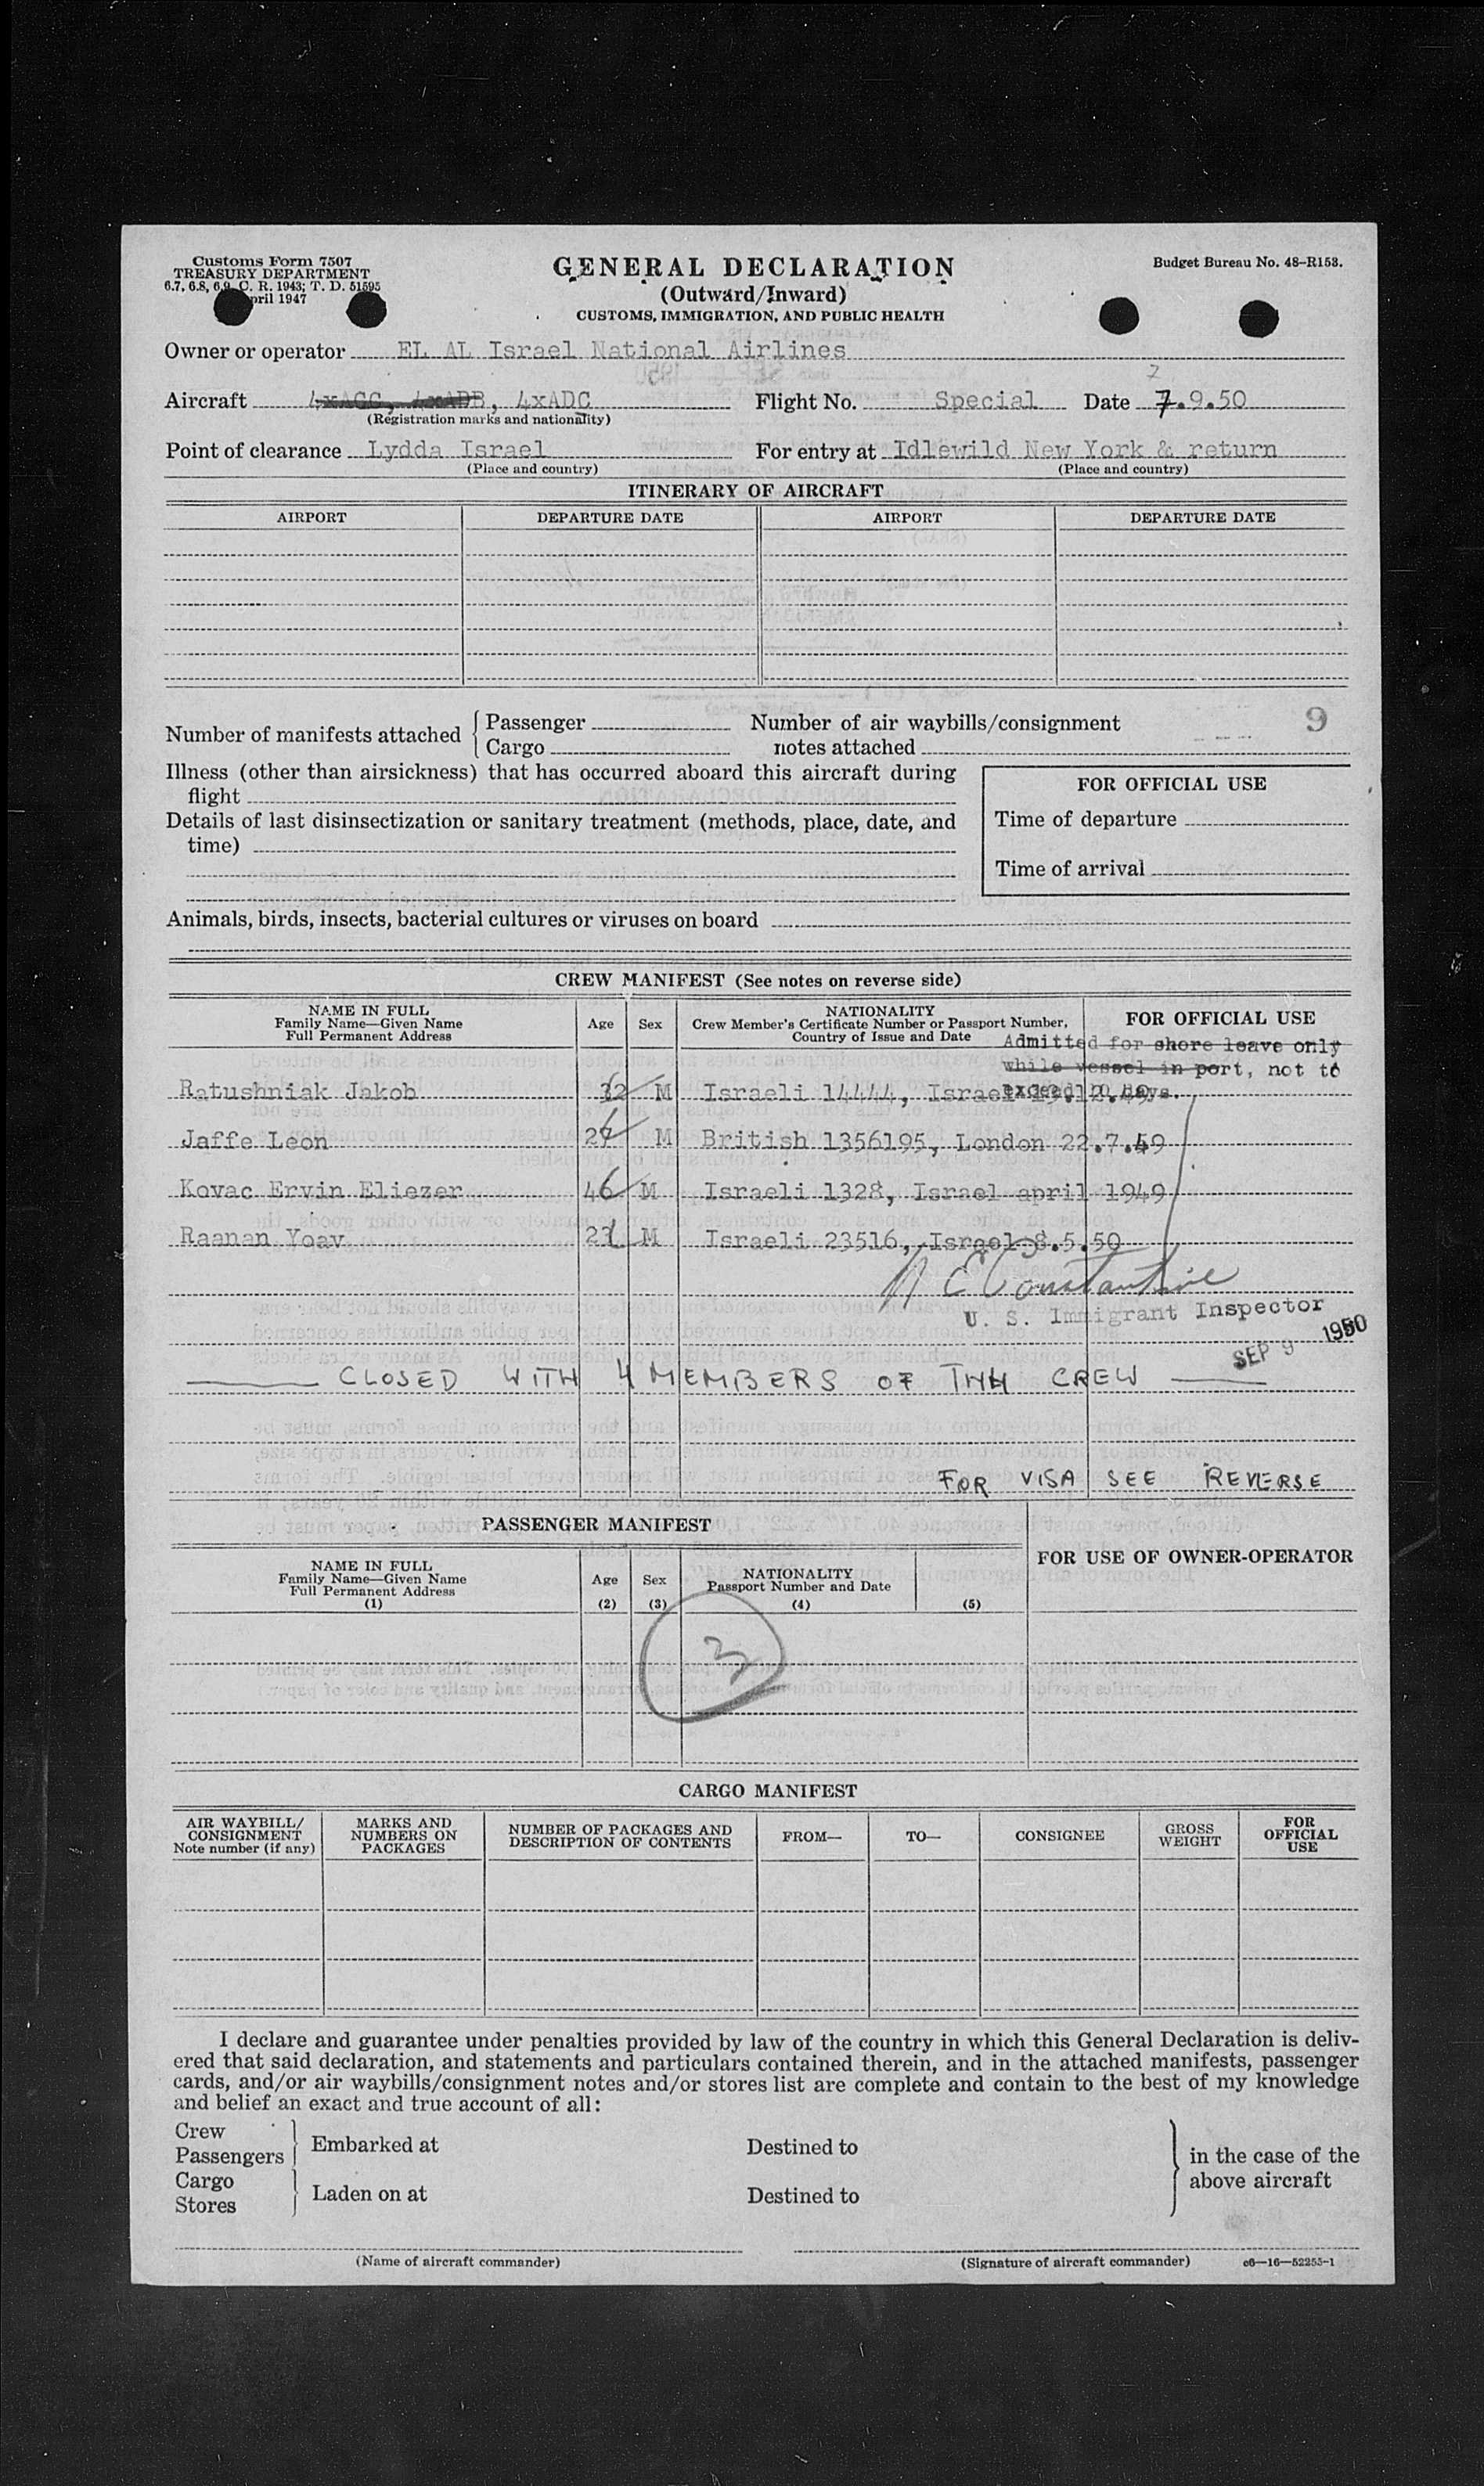 Customs Form 7507
TREASURY DEPARTMENT
6.7, 6.8, 6.9, C. R. 1943; T. D. 51595
April 1947
GENERAL DECLARATION
(Outward/Inward)
CUSTOMS, IMMIGRATION, AND PUBLIC HEALTH
Budget Bureau No. 48-R153.
Owner or operator EL AL Israel National Airlines
Aircraft 4xAGC, 4xADB, 4xADC Flight No. Special Date 7.9.50
(Registration marks and nationality)
Point of clearance Lydda Israel For entry at Idlewild New York & return
(Place and country) (Place and country)
ITINERARY OF AIRCRAFT
AIRPORT DEPARTURE DATE AIRPORT DEPARTURE DATE
Number of manifests attached { Passenger
Cargo
Number of air waybills/consignment
notes attached
9
Illness (other than airsickness) that has occurred aboard this aircraft during
flight
Details of last disinsectization or sanitary treatment (methods, place, date, and
time)
FOR OFFICIAL USE
Time of departure
Time of arrival
Animals, birds, insects, bacterial cultures or viruses on board
CREW MANIFEST (See notes on reverse side)
NAME IN FULL
Family Name—Given Name
Full Permanent Address
Age Sex
NATIONALITY
Crew Member's Certificate Number or Passport Number,
Country of Issue and Date
FOR OFFICIAL USE
Admitted for shore leave only
while vessel in port, not to
exceed days.
Ratushniak Jakob 32 M Israeli 14444, Israel
Jaffe Leon 27 M British 1356195, London 22.7.49
Kovac Ervin Eliezer 46 M Israeli 1328, Israel april 1949
Raanan Yoav 21 M Israeli 23516, Israel 8.5.50
U. S. Immigrant Inspector
SEP 9 1950
CLOSED WITH 4 MEMBERS OF THE CREW
FOR VISA SEE REVERSE
PASSENGER MANIFEST
NAME IN FULL
Family Name—Given Name
Full Permanent Address
(1)
Age
(2)
Sex
(3)
NATIONALITY
Passport Number and Date
(4) (5)
FOR USE OF OWNER-OPERATOR
3
CARGO MANIFEST
AIR WAYBILL/
CONSIGNMENT
Note number (if any)
MARKS AND
NUMBERS ON
PACKAGES
NUMBER OF PACKAGES AND
DESCRIPTION OF CONTENTS
FROM—
TO—
CONSIGNEE
GROSS
WEIGHT
FOR
OFFICIAL
USE
I declare and guarantee under penalties provided by law of the country in which this General Declaration is deliv-
ered that said declaration, and statements and particulars contained therein, and in the attached manifests, passenger
cards, and/or air waybills/consignment notes and/or stores list are complete and contain to the best of my knowledge
and belief an exact and true account of all:
Crew
Passengers } Embarked at Destined to
Cargo
Stores } Laden on at Destined to
} in the case of the
above aircraft
(Name of aircraft commander) (Signature of aircraft commander) c6—16—52255-1